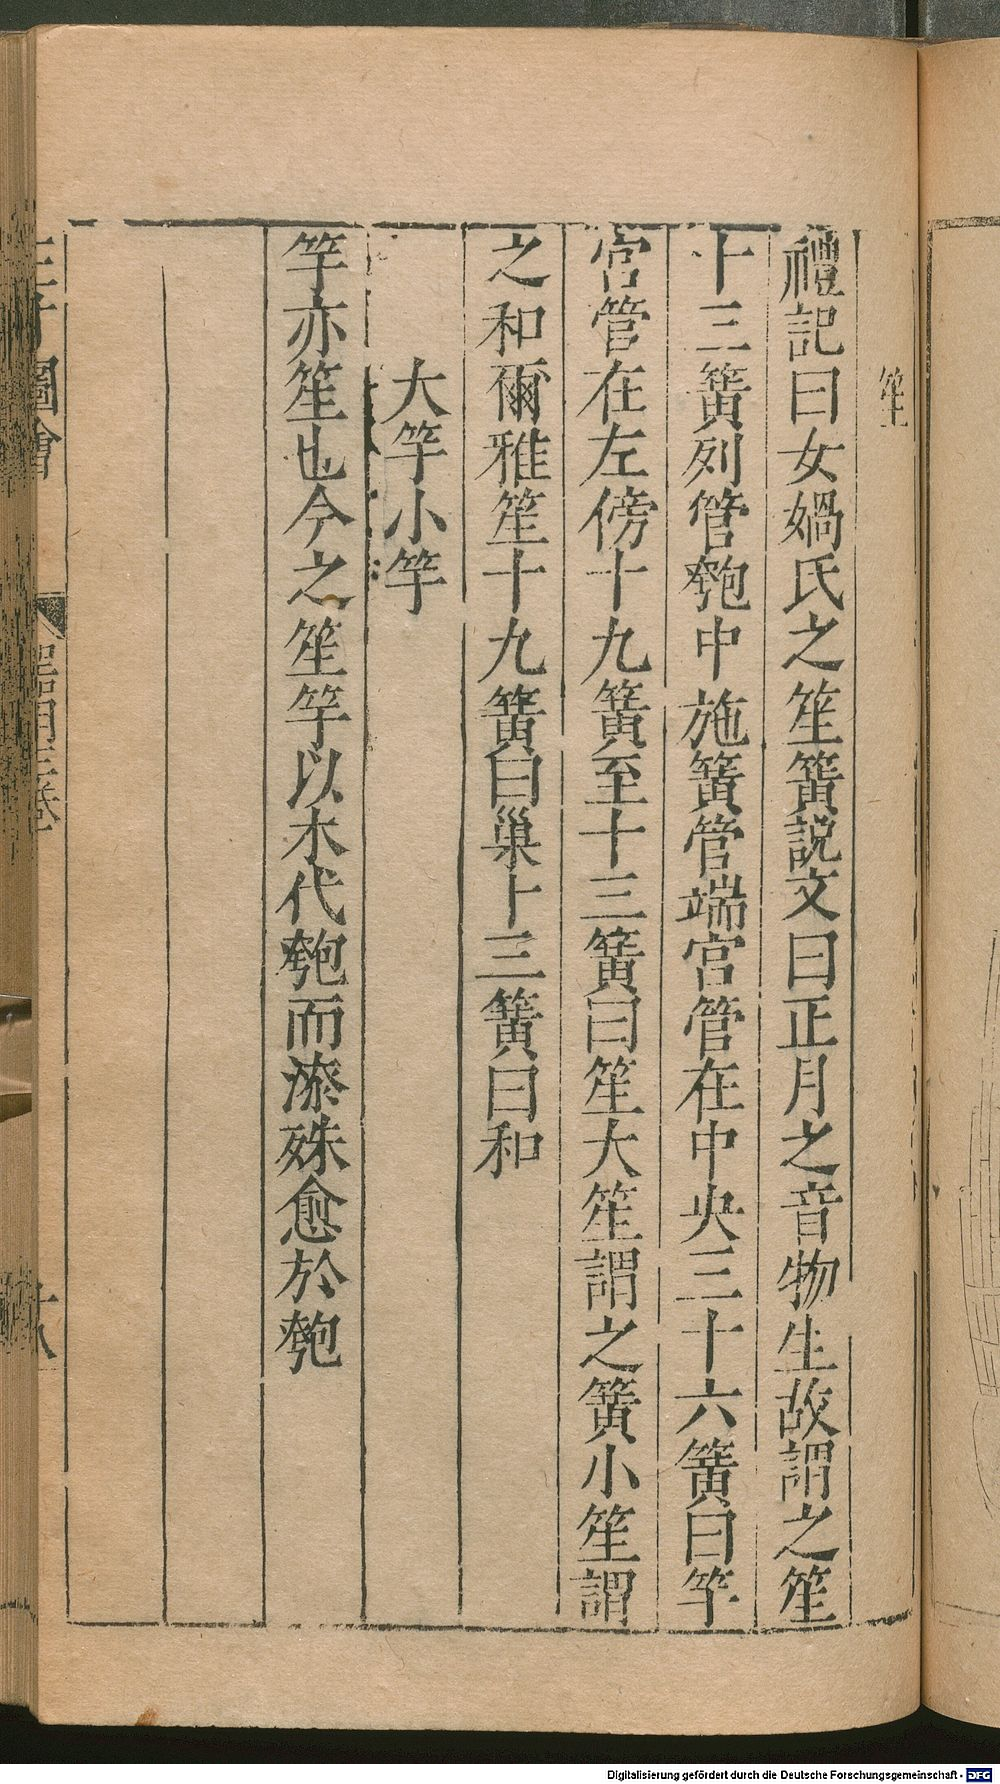 笙
禮記曰女媧氏之笙簧説文曰正月之音物生故謂之笙
十三簧列管匏中施簧管端宫管在中央三十六簧曰竽
宫管在左傍十九簧至十三簧曰笙大笙謂之簧小笙謂
之和爾雅笙十九簧曰巢十三簧曰和
大竽小竽
竽亦笙也今之笙竽以木代匏而漆殊愈於匏
三才圖會
器用三卷
十八
Digitalisierung gefördert durch die Deutsche Forschungsgemeinschaft - DFG